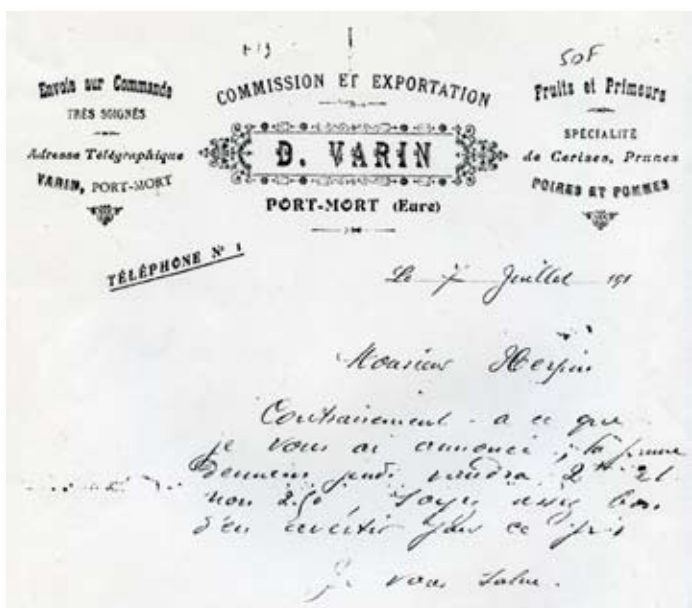 50F
Envois sur Commande
TRÈS SOIGNÉS
Adresse Télégraphique
VARIN, PORT-MORT
COMMISSION ET EXPORTATION
D. VARIN
PORT-MORT (Eure)
Fruits et Primeurs
SPÉCIALITÉ
de Cerises, Prunes
POIRES ET POMMES
TÉLÉPHONE N° 1
Le 7 Juillet 191
Monsieur Herpin
Contrairement a ce que
je vous ai annoncé, la prune
demain jeudi vaudra 2 et
non 2.50 Soyez assez bon
d'en avertir pour ce prix
Je vous salue.